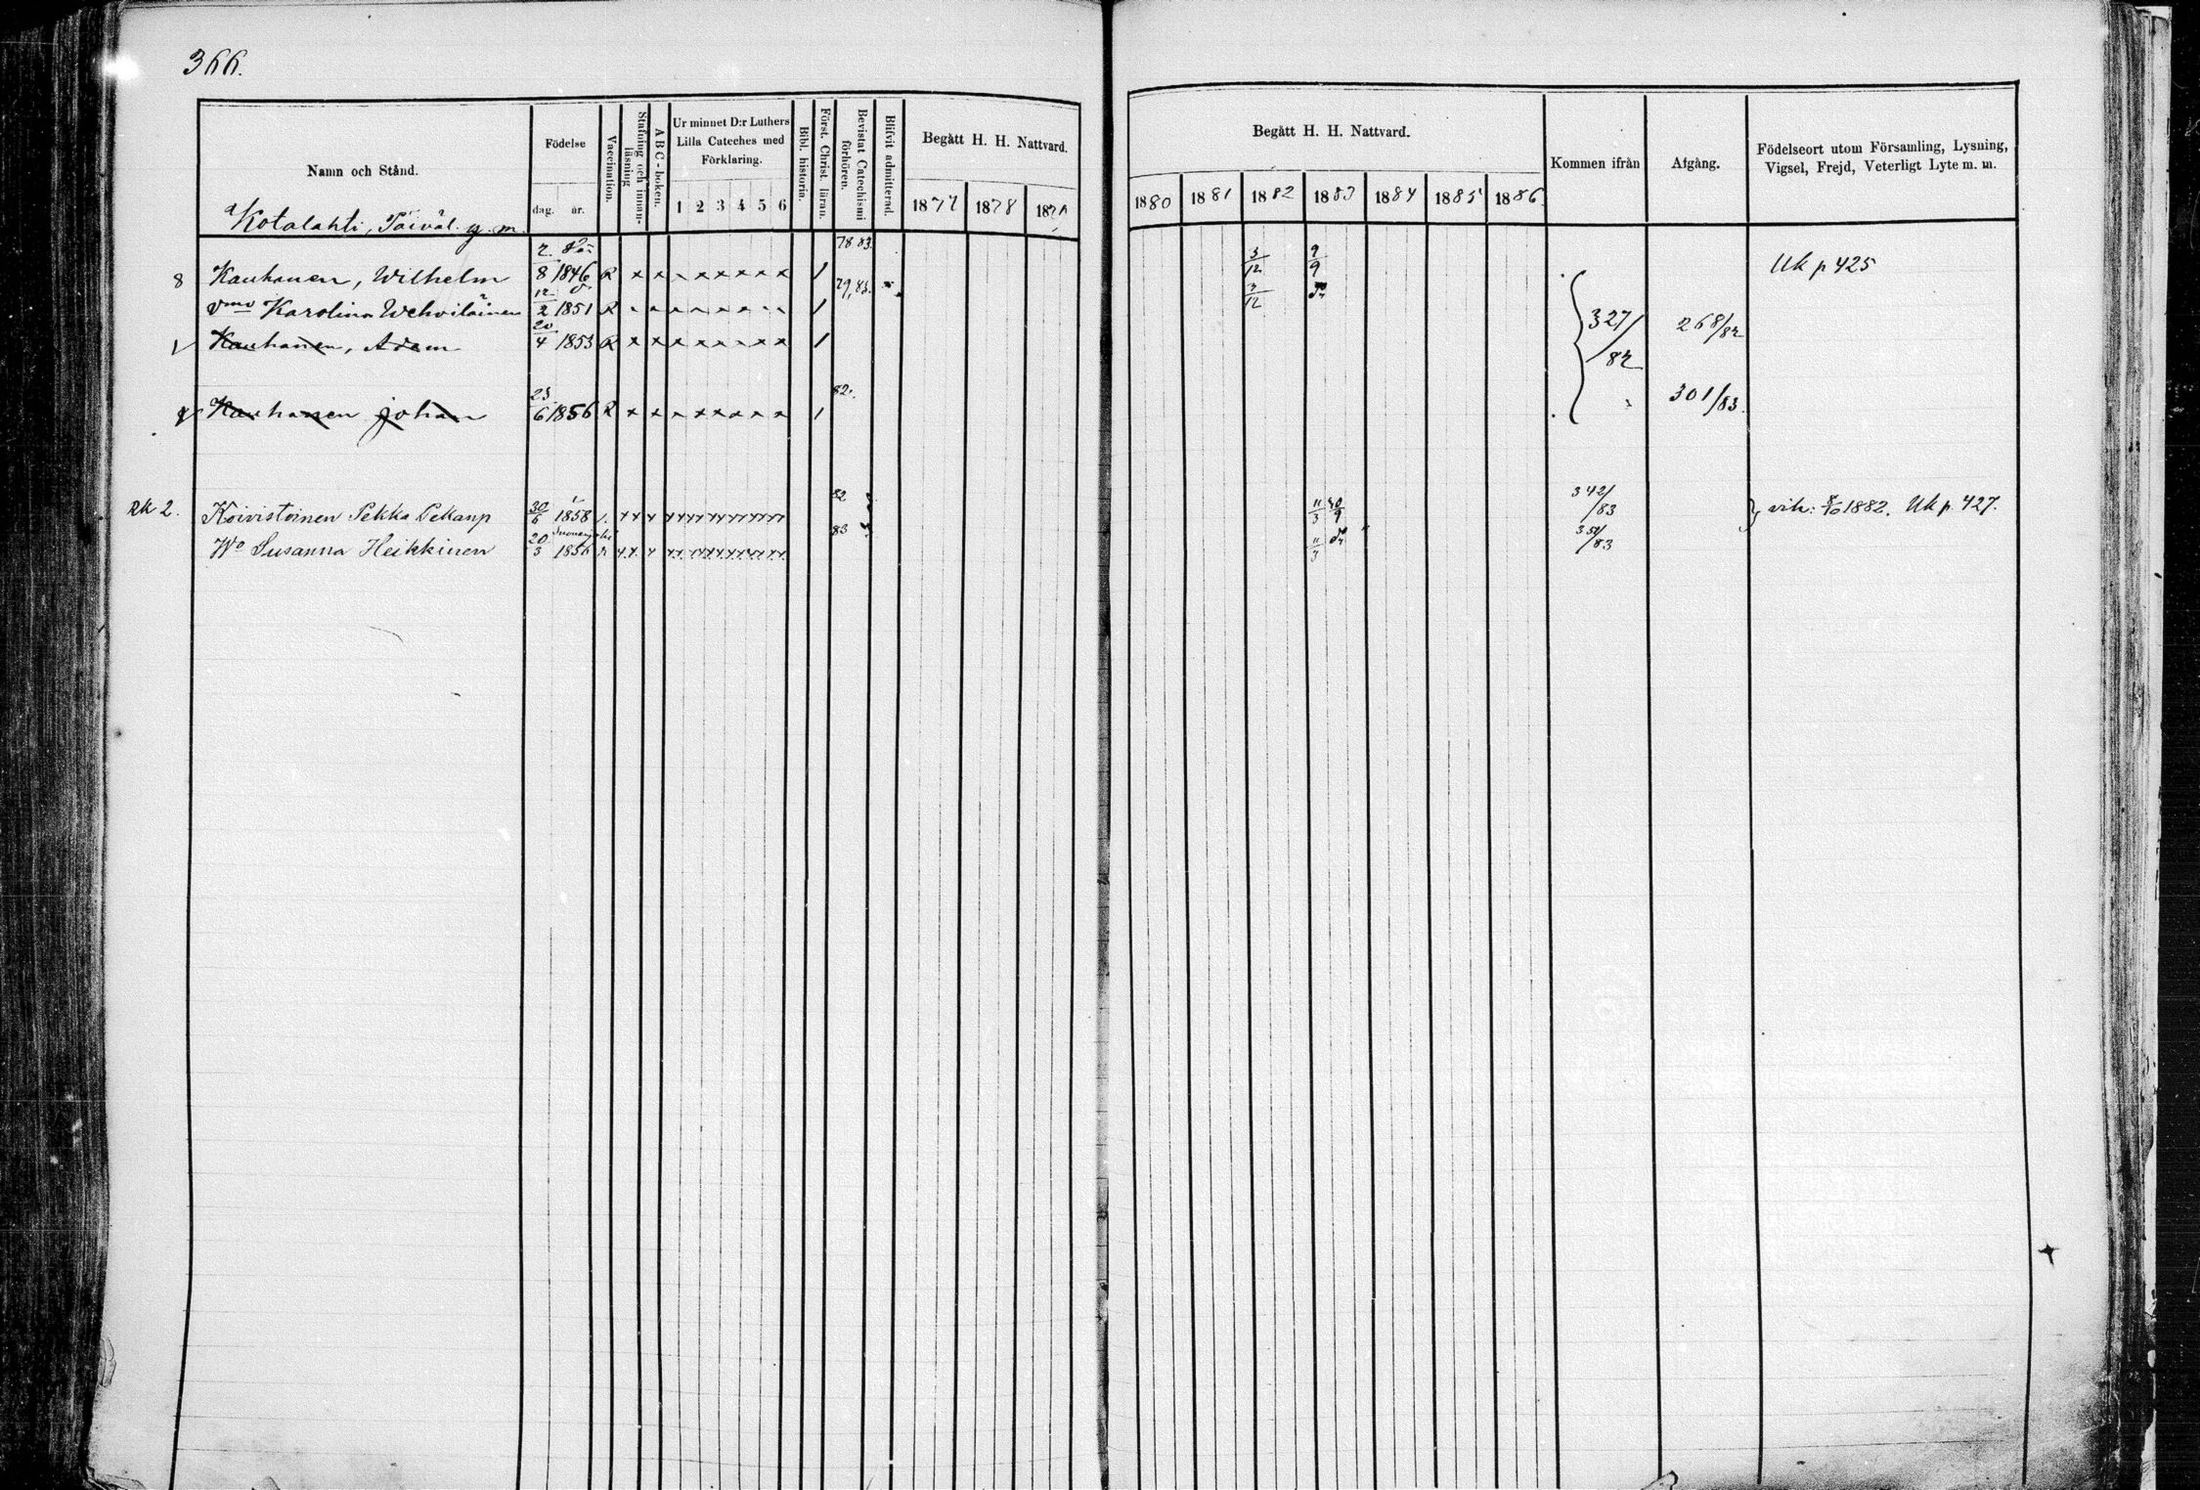 366.
Namn och Stånd.
Födelse
dag. år.
Vaccination.
Stafning och innan-
läsning
A B C-boken.
Ur minnet D:r Luthers
Lilla Cateches med
Förklaring.
1 2 3 4 5 6
Bibl. historia.
Först. Christ. läran.
Bevistat Catechismi
förhören.
Blifvit admitterad.
Begått H. H. Nattvard.
1877 1878 1879
Begått H. H. Nattvard.
1880 1881 1882 1883 1884 1885 1886
Kommen ifrån
Afgång.
Födelseort utom Församling, Lysning,
Vigsel, Frejd, Veterligt Lyte m. m.
Kotalahti, Päiväl. y. m.
8 Kauhanen, Wilhelm 2/8 1846 R x x x x x x x x 1 78 83. 3/12 9/9 Uk p 425
vmo Karolina Wehviläinen 12/2 1851 R 1 79, 83. 3/12
Kauhanen, Adam 20/4 1853 R x x x x x x x x 1 327/82 268/82
Kauhanen Johan 23/6 1856 R x x x x x x x x 1 82. 301/83.
Rk 2. Koivistoinen Pekka Pekanp 30/6 1858 82 11/3 30/9 342/83 vih: 8/10 1882. Uk p. 427.
Wo Susanna Heikkinen 20/3 1856 83 11/3 351/83